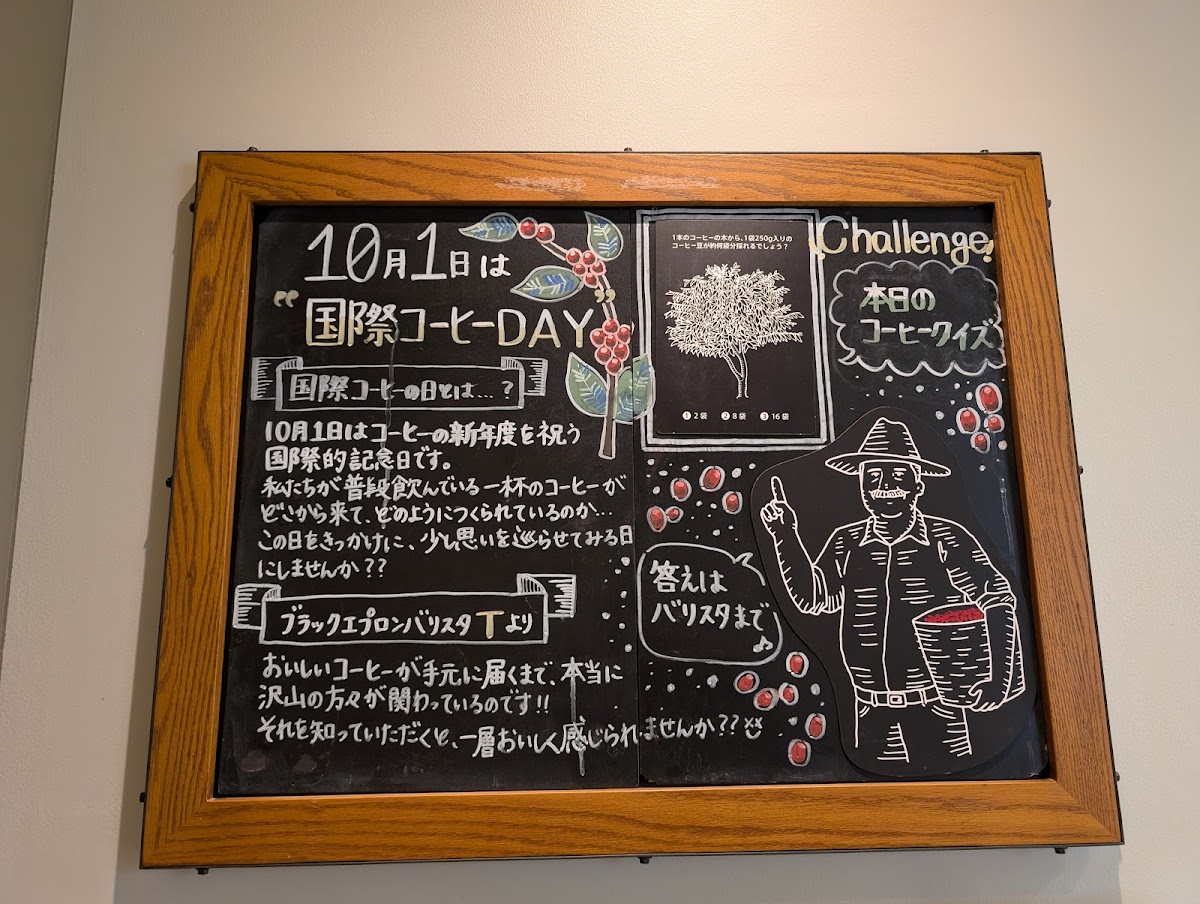 10月1日は
"国際コーヒーDAY"
国際コーヒーの日とは…?
10月1日はコーヒーの新年度を祝う
国際的記念日です。
私たちが普段飲んでいる一杯のコーヒーが
どこから来て、どのようにつくられているのか…
この日をきっかけに、少し思いを巡らせてみる日
にしませんか??
ブラックエプロンバリスタTより
おいしいコーヒーが手元に届くまで、本当に
沢山の方々が関わっているのです!!
それを知っていただくと、一層おいしく感じられませんか??
1本のコーヒーの木から、1袋250g入りの
コーヒー豆が約何袋分採れるでしょう?
❶ 2袋 ❷ 8袋 ❸ 16袋
Challenge!
本日の
コーヒークイズ
答えは
バリスタまで♪